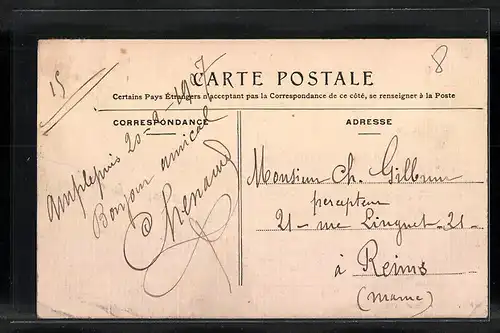 15
8
CARTE POSTALE
Certains Pays Étrangers n'acceptant pas la Correspondance de ce côté, se renseigner à la Poste
CORRESPONDANCE
Amplepuis 20-9-1907
Bonjour amical
ADRESSE
Monsieur Ch.
percepteur
21 - rue Linguet - 21 -
à Reims
(Marne)